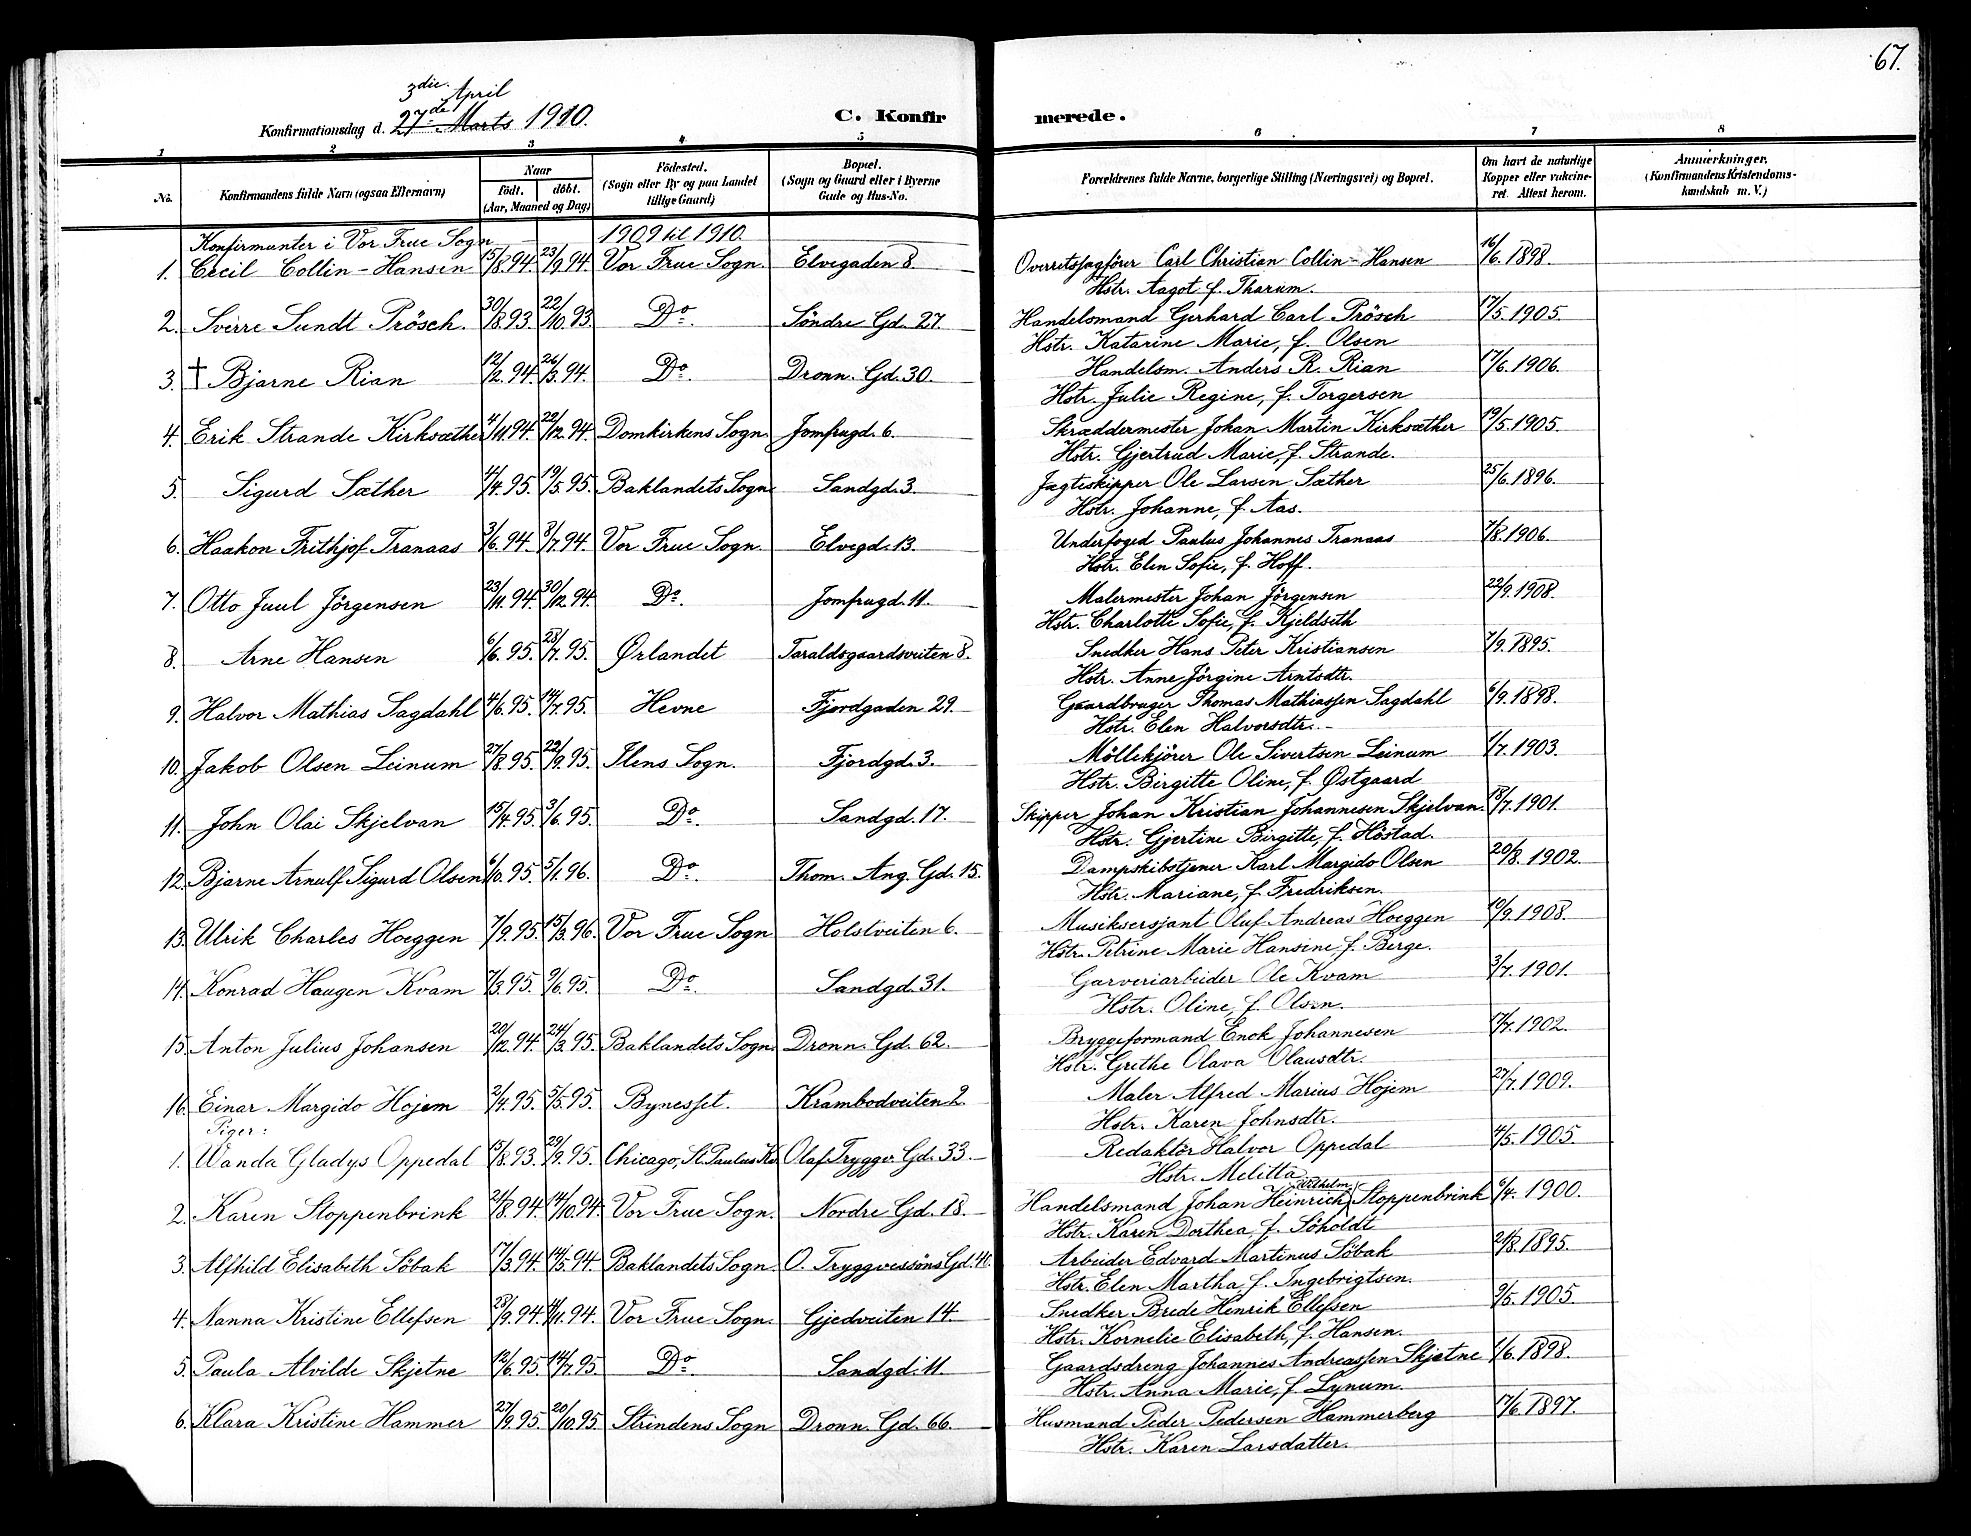 67.
3die April
Konfirmationsdag d. 27de Marts 1910.
C. Konfirmerede.
1 2 3 4 5 6 7 8
No. Konfirmandens fulde Navn (ogsaa Efternavn) Naar Födt. döbt. (Aar, Maaned og Dag) Födested. (Sogn eller By og paa Landet tillige Gaard) Bopæl. (Sogn og Gaard eller i Byerne Gade og Hus-No. Forældrenes fulde Navne, borgerlige Stilling (Næringsvei) og Bopæl. Om havt de naturlige Kopper eller vaccineret. Attest herom. Anmærkninger. (Konfirmandens Kristendomskundskab m. V.)
Konfirmanter i Vor Frue Sogn 1909 til 1910.
1. Cecil Collin-Hansen 15/8.94. 23/9.94. Vor Frue Sogn. Elvegaden 8. Overretssagförer Carl Christian Collin-Hansen 16/6.1898.
Hstr. Aagot f. Tharum.
2. Sverre Sundt Prösch. 30/8.93. 22/10.93. Do. Söndre Gd. 27. Handelsmand Gerhard Carl Prösch 17/5.1905.
Hstr. Katarine Marie, f. Olsen
3. † Bjarne Rian 12/2.94. 26/3.94. Do. Dronn. Gd. 30. Handelsm. Anders R. Rian 17/6.1906.
Hstr. Julie Regine, f. Torgersen
4. Erik Strande Kirksæther 4/11.94. 22/12.94. Domkirkens Sogn. Jomfrugd. 6. Skræddermester Johan Martin Kirksæther 19/5.1905.
Hstr. Gjertrud Marie, f. Strande.
5. Sigurd Sæther 4/4.95. 19/5.95. Baklandets Sogn. Sandgd. 3. Jægteskipper Ole Larsen Sæther 25/6.1896.
Hstr. Johanne, f. Aas.
6. Haakon Frithjof Tranaas 3/6.94. 8/7.94. Vor Frue Sogn. Elvegd. 13. Underfoged Paulus Johannes Tranaas 7/8.1906.
Hstr. Elen Sofie, f. Hoff.
7. Otto Juul Jörgensen 23/11.94. 30/12.94. Do. Jomfrugd. 11. Malermester Johan Jörgensen 22/9.1908.
Hstr. Charlotte Sofie, f. Kjeldseth
8. Arne Hansen 6/6.95. 28/7.95. Ørlandet Taraldsgaardsveiten 8. Snedker Hans Peter Kristiansen 7/9.1895.
Hstr. Anne Jörgine Arntsdtr.
9. Halvor Mathias Sagdahl 4/6.95. 14/7.95. Hevne Fjordgaden 29. Gaardbruger Thomas Mathiassen Sagdahl 6/9.1898.
Hstr. Elen Halvorsdtr.
10. Jakob Olsen Leinum 27/8.95. 22/9.95. Ilens Sogn. Fjordgd. 3. Möllekjörer Ole Sivertsen Leinum 1/7.1903.
Hstr. Birgitte Oline, f. Østgaard
11. John Olai Skjelvan 15/4.95. 3/6.95. Do. Sandgd. 17. Skipper Johan Kristian Johannesen Skjelvan. 18/7.1901.
Hstr. Gjertine Birgitte, f. Höstad.
12. Bjarne Arnulf Sigurd Olsen 6/10.95. 5/1.96. Do. Thom. Ang. Gd. 15. Dampskibstjener Karl Margido Olsen 20/8.1902.
Hstr. Mariane, f. Fredriksen.
13. Ulrik Charles Hoeggen 7/9.95. 15/3.96. Vor Frue Sogn Holstveiten 6. Musiksersjant Oluf Andreas Hoeggen 10/9.1908.
Hstr. Petrine Marie Hansine f. Berge.
14. Konrad Haugen Kvam 7/3.95. 9/6.95. Do. Sandgd. 31. Garveriarbeider Ole Kvam 3/7.1901.
Hstr. Oline, f. Olsen.
15. Anton Julius Johansen 20/12.94. 24/3.95. Baklandets Sogn. Dronn. Gd. 62. Bryggeformand Enok Johannesen 17/7.1902.
Hstr. Grethe Olava Olausdtr.
16. Einar Margido Hojem 2/4.95. 5/5.95. Bynesset. Krambodveiten 2. Maler Alfred Marius Hojem 27/7.1909.
Hstr. Karen Johnsdtr.
Piger:
1. Wanda Gladys Oppedal 15/8.93. 29/9.95. Chicago, St. Paulus K. Olaf Tryggv. Gd. 33. Redaktör Halvor Oppedal 4/5.1905.
Hstr. Melitta
2. Karen Stoppenbrink 24/8.94. 14/10.94. Vor Frue Sogn. Nordre Gd. 18. Handelsmand Johan Heinrich Wilhelm Stoppenbrink 6/4.1900.
Hstr. Karen Dorthea, f. Söholdt
3. Alfhild Elisabeth Söbak 17/3.94. 14/5.94. Baklandets Sogn. O. Tryggvessöns Gd. 40. Arbeider Edvard Martinus Söbak 21/8.1895.
Hstr. Elen Martha, f. Ingebrigtsen.
4. Nanna Kristine Ellefsen 28/9.94. 11/11.94. Vor Frue Sogn. Gjedveiten 14. Snedker Brede Henrik Ellefsen 9/5.1905.
Hstr. Kornelie Elisabeth, f. Hansen.
5. Paula Alvilde Skjetne 13/6.95. 14/7.95. Do. Sandgd. 11. Gaardsdreng Johannes Andreassen Skjetne 1/6.1898.
Hstr. Anna Marie, f. Lynum.
6. Klara Kristine Hammer 27/9.95. 20/10.95. Strindens Sogn Dronn. Gd. 66. Husmand Peder Pedersen Hammerberg 17/6.1897.
Hstr. Karen Larsdatter.